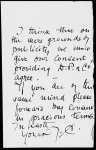 I think this on
the mere grounds of
publicity, we must
give our consent
providing D.P. & Co
agree.
If you are of the
same mind please
forward Day
in gracious terms
in
Yours